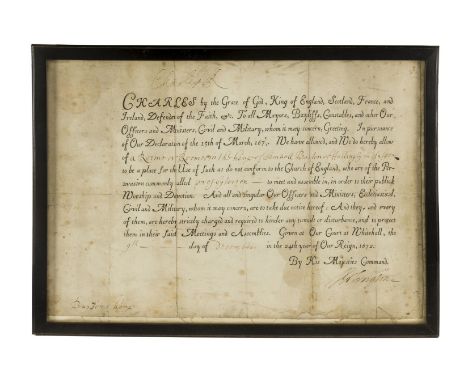 Charles R
CHARLES by the Grace of God, King of England, Scotland, France, and
Ireland, Defender of the Faith, &c. To all Mayors, Bayliffs, Constables, and other Our
Officers and Ministers, Civil and Military, whom it may concern, Greeting. In pursuance
of Our Declaration of the 15th of March, 167½. We have allowed, and We do hereby allow
of a
to be a place for the Use of such as do not conform to the Church of England, who are of the Per-
swasion commonly called to meet and assemble in, in order to their publick
Worship and Devotion. And all and singular Our Officers and Ministers, Ecclesiastical,
Civil and Military, whom it may concern, are to take due notice hereof: And they, and every
of them, are hereby strictly charged and required to hinder any tumult or disturbance, and to protect
them in their said Meetings and Assemblies. Given at Our Court at Whitehall, the
9th day of December in the 24th year of Our Reign, 1672.
By His Majesties Command.
Arlington